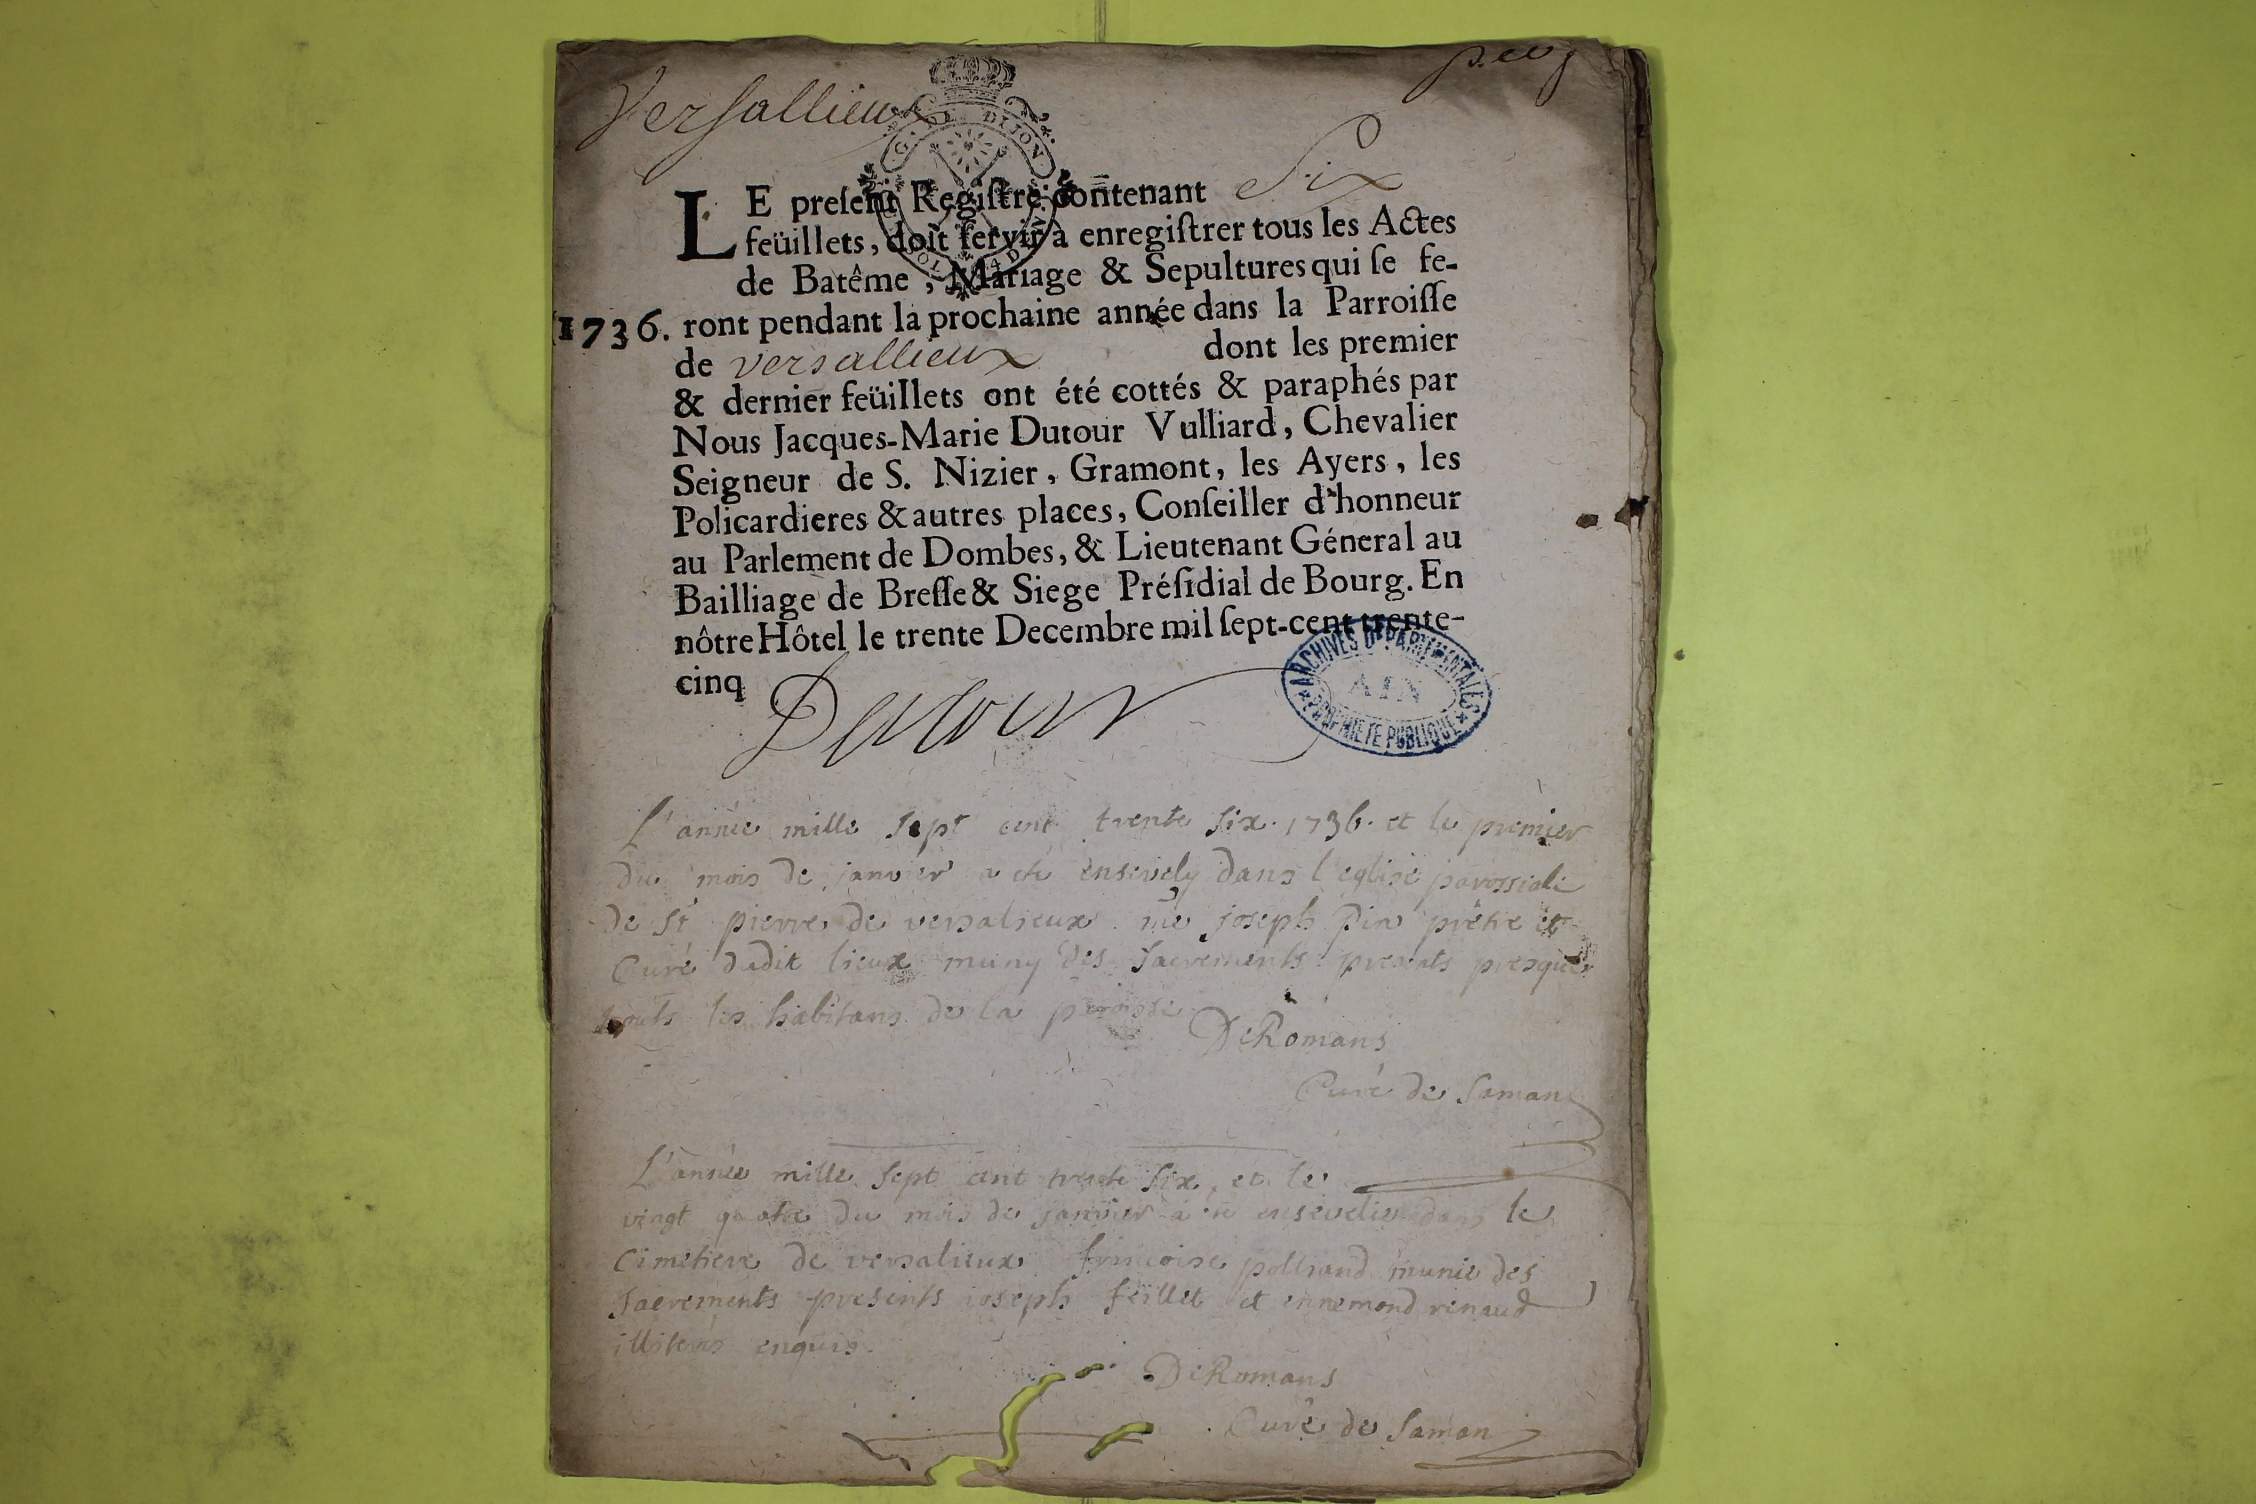 Versallieux
G. DE DIJON
Six
LE preſent Regiſtre contenant
feüillets, doit ſervir à enregiſtrer tous les Actes
de Batême, Mariage & Sepultures qui ſe fe-
1736. ront pendant la prochaine année dans la Parroiſſe
de versallieux dont les premier
& dernier feüillets ont été cottés & paraphés par
Nous Jacques-Marie Dutour Vulliard, Chevalier
Seigneur de S. Nizier, Gramont, les Ayers, les
Policardieres & autres places, Conſeiller d'honneur
au Parlement de Dombes, & Lieutenant Géneral au
Bailliage de Breſſe & Siege Préſidial de Bourg. En
nôtre Hôtel le trente Decembre mil ſept-cent trente-
cinq
Dutour
ARCHIVES DEPARTEMENTALES
AIN
PROPRIETE PUBLIQUE
L'année mille sept cent trente six. 1736. et le premier
du mois de janvier a été ensevely dans l'eglise parossiale
de st pierre de versalieux me joseph pin prêtre et
Curé dudit lieux muny des sacrements presents presque
touts les habitans de la paroisse
DeRomans
Curé de Samans
L'année mille sept cent trente six, et le
vingt quatre du mois de janvier a été ensevelie dans le
Cimetiere de versalieux francoise munie des
sacrements presents joseph feillet et ennemond renaud
illiterés enquis.
DeRomans
Curé de Saman